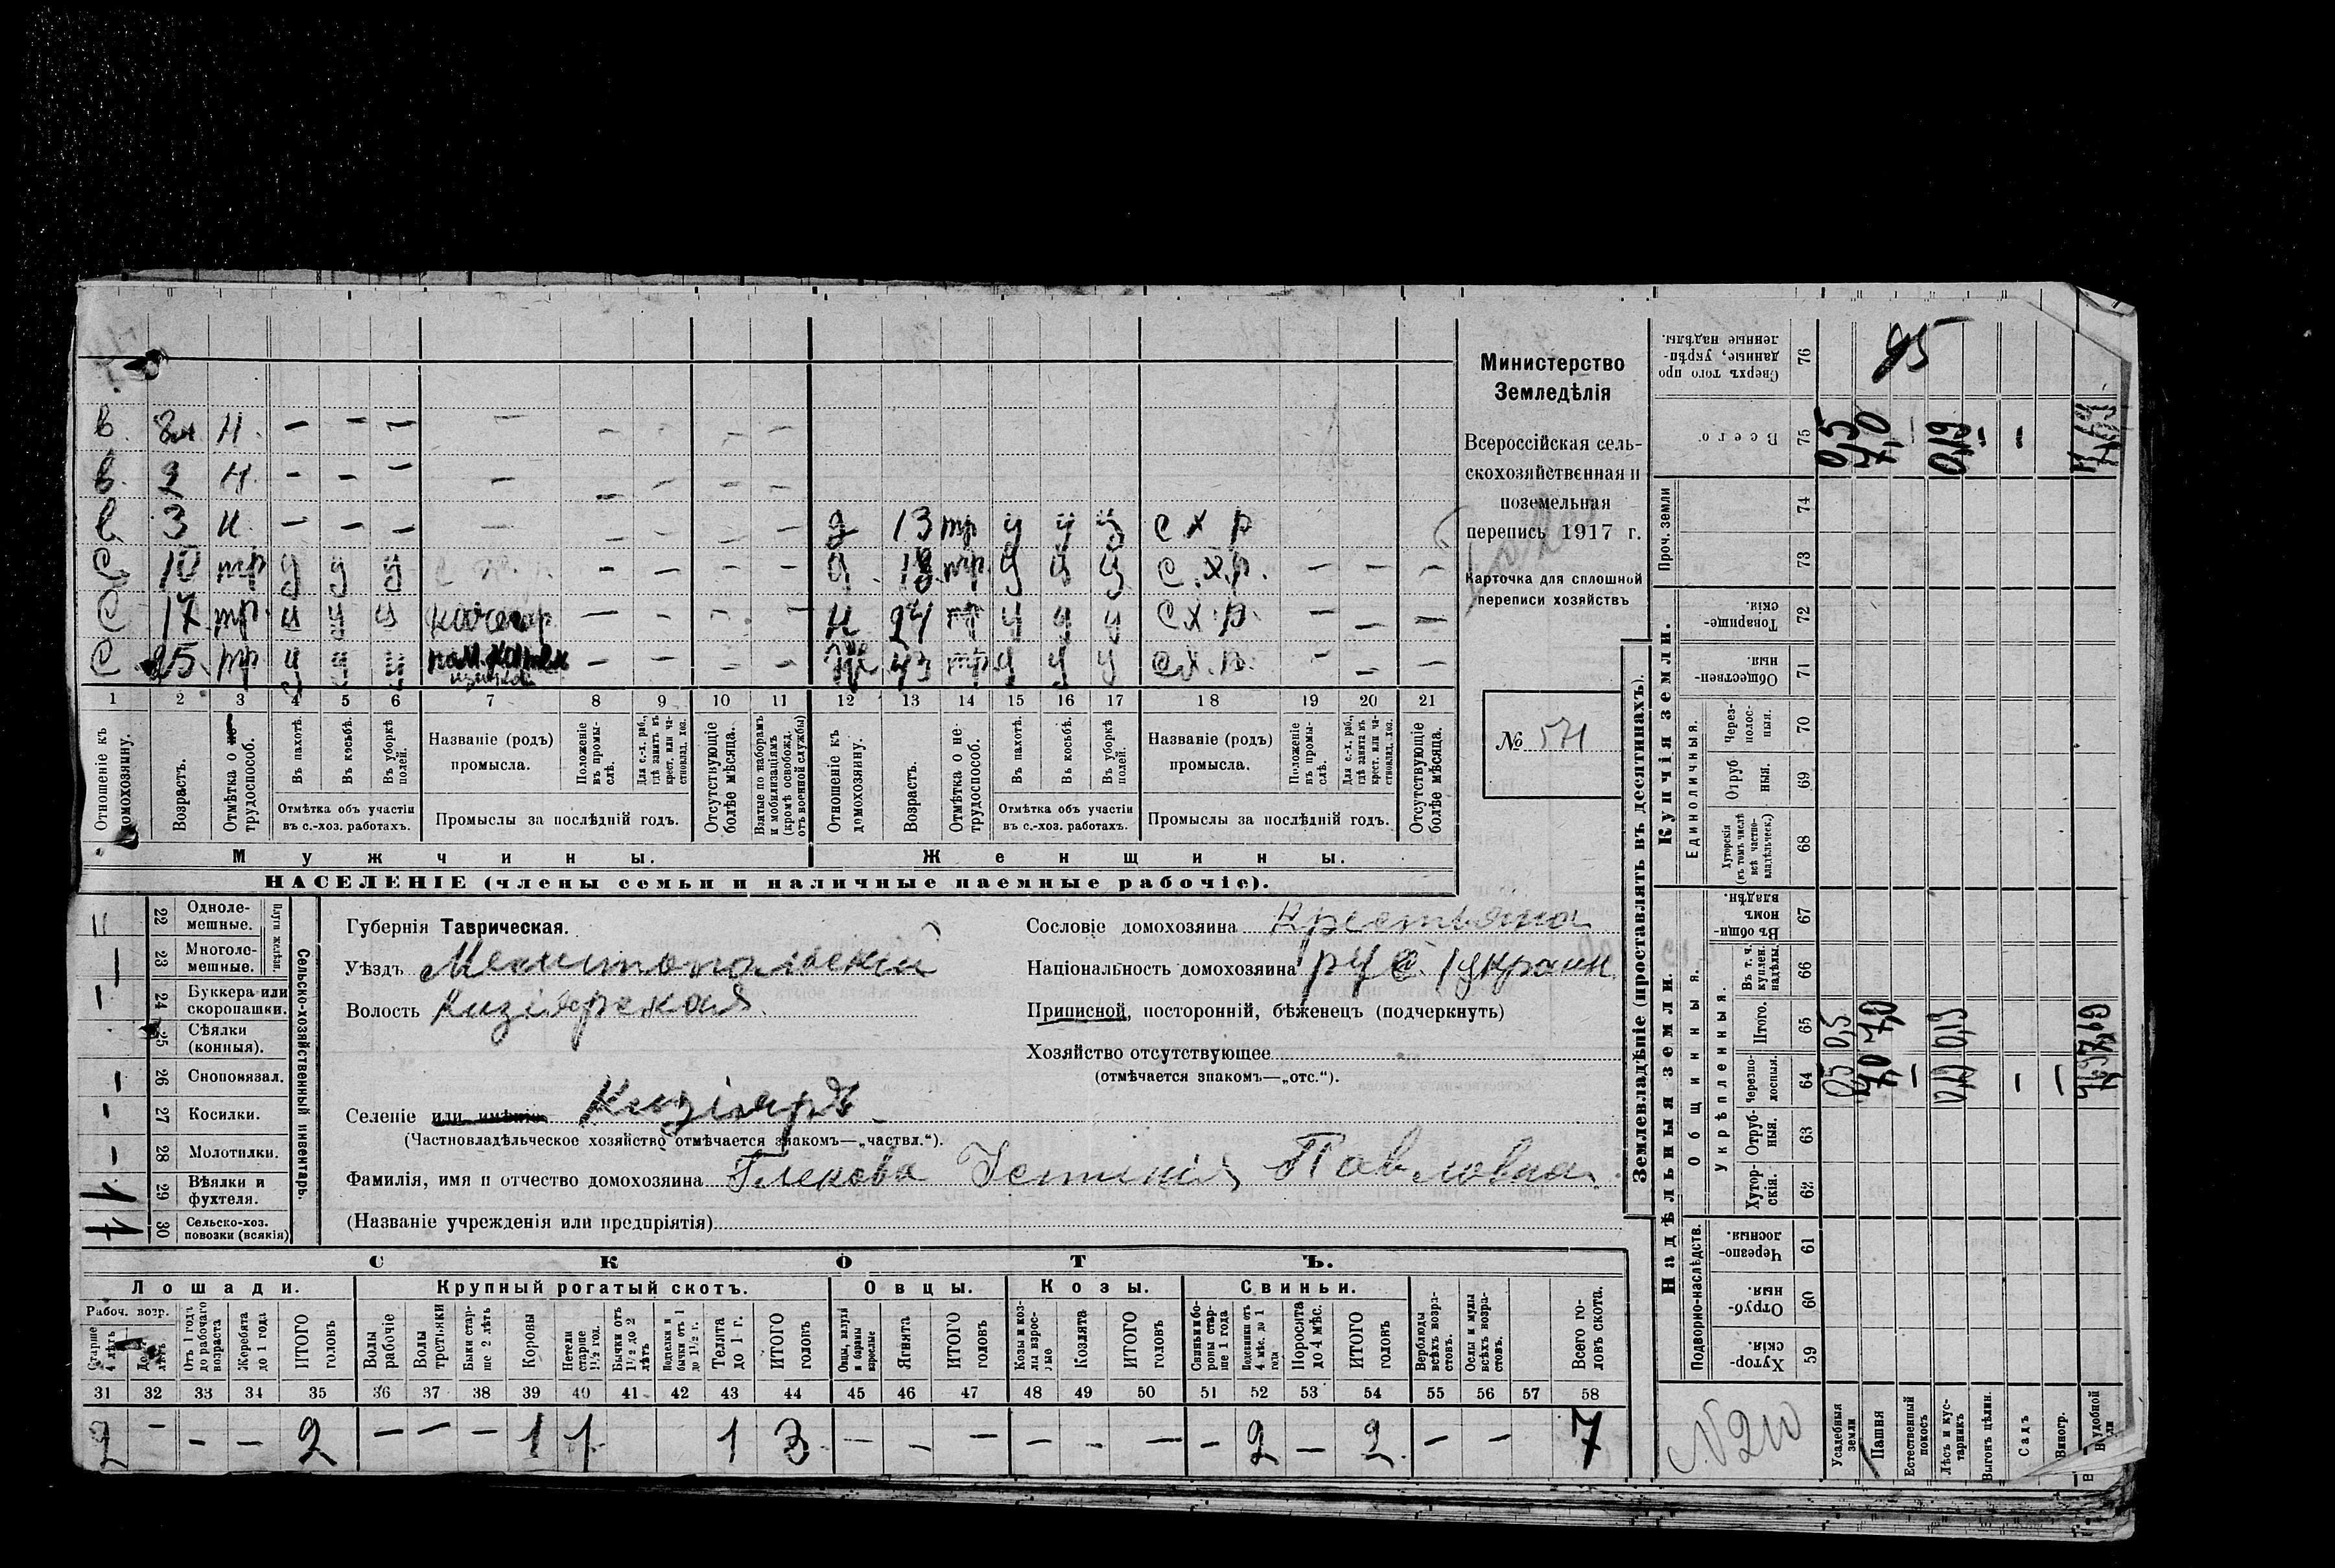 Министерство
Земледѣлія
Всероссійская сель-
скохозяйственная и
поземельная
перепись 1917 г.
Карточка для сплошной
переписи хозяйствъ
№ 571
в. 2м Н. — — — — — — — —
в. 2 Н. — — — — — — — —
в 3 Н. — — — — — — — — д 13 тр у у у с х р
С 10 тр у у у — — — — д. 18 тр. у у у с. х. р. — — —
С 17 тр. у у у кочегар — — — — н 24 тр у у у с х. р. — — —
С 25 тр у у у — — — — Же 43 тр у у у с. х. р. — — —
1 2 3 4 5 6 7 8 9 10 11 12 13 14 15 16 17 18 19 20 21
Отношеніе къ домохозяину.
Возрастъ.
Отмѣтка о не- трудоспособ.
Въ пахотѣ.
Въ косьбѣ.
Въ уборкѣ полей.
Отмѣтка объ участіи
въ с.-хоз. работахъ.
Названіе (родъ)
промысла.
Положеніе въ промы- слѣ.
Для с.-х. раб., гдѣ занятъ въ крест. или ча- стновлад. хоз.
Промыслы за послѣдній годъ.
Отсутствующіе болѣе мѣсяца.
Взятые по наборамъ и мобилизаціямъ (кромѣ освобожд. отъ военной службы)
Отношеніе къ домохозяину.
Возрастъ.
Отмѣтка о не- трудоспособ.
Въ пахотѣ.
Въ косьбѣ.
Въ уборкѣ полей.
Отмѣтка объ участіи
въ с.-хоз. работахъ.
Названіе (родъ)
промысла.
Положеніе въ промы- слѣ.
Для с.-х. раб., гдѣ занята въ крест. или ча- стновлад. хоз.
Промыслы за послѣдній годъ.
Отсутствующіе болѣе мѣсяца.
Мужчины. Женщины.
НАСЕЛЕНІЕ (члены семьи и наличные наемные рабочіе).
Сельско-хозяйственный инвентарь.
Плуги желѣзн.
22 Одноле-
мешные.
— 23 Многоле-
мешные.
— 24 Буккера или
скоропашки.
25 Сѣялки
(конныя).
— 26 Сноповязал.
— 27 Косилки.
— 28 Молотилки.
1 29 Вѣялки и
фухтеля.
1 30 Сельско-хоз.
повозки (всякія)
Губернія Таврическая.
Уѣздъ Мелитопольскій
Волость Кизіярская
Селеніе или имѣніе Кизіяръ
(Частновладѣльческое хозяйство отмѣчается знакомъ—„частвл.“).
Фамилія, имя и отчество домохозяина Глекова Устинія Павловна
(Названіе учрежденія или предпріятія)
Сословіе домохозяина Крестьянка
Національность домохозяина рус. украин
Приписной, посторонній, бѣженецъ (подчеркнуть)
Хозяйство отсутствующее
(отмѣчается знакомъ—„отс.“).
СКОТЪ.
Лошади. Крупный рогатый скотъ. Овцы. Козы. Свиньи.
Рабоч. возр.
Старше 4 лѣтъ
До 4 лѣтъ
Отъ 1 года до рабочаго возраста
Жеребята до 1 года
ИТОГО головъ
Волы рабочіе
Волы третьяки
Быки стар- ше 2 лѣтъ
Коровы
Нетели старше 1½ год.
Бычки отъ 1½ до 2 лѣтъ
Подтелки и бычки отъ 1 до 1½ г.
Телята до 1 г.
ИТОГО головъ
Овцы, валухи и бараны взрослые
Ягнята
ИТОГО головъ
Козы и коз- лы взрос- лые
Козлята
ИТОГО головъ
Свиньи и бо- роны стар- ше 1 года
Подсвинки отъ 4 мѣс. до 1 года
Поросята до 4 мѣс.
ИТОГО головъ
Верблюды всѣхъ возра- стовъ.
Ослы и мулы всѣхъ возра- стовъ.
Всего го- ловъ скота.
31 32 33 34 35 36 37 38 39 40 41 42 43 44 45 46 47 48 49 50 51 52 53 54 55 56 57 58
2 — — — 2 — — — 1 1 1 3 — — — — — — — 2 — 2 — — 7
Землевладѣніе (проставлять въ десятинахъ).
Купчія земли.
Надѣльныя земли.
Сверхъ того про данные, укрѣп- ленные надѣлы. 76 95
Всего 75 0,5 7,0 — 0,19 — — 7,69
Проч. земли 74
73
Товарище- скія. 72
Обществен- ныя. 71
Единоличныя.
Через- полос- ныя. 70
Отруб ныя. 69
Хуторскія (въ томъ числѣ всѣ частно- владѣльческ.) 68
Общинныя.
Въ общи- номъ владѣн. 67
Укрѣпленныя.
Въ т. ч. куплен. надѣлы. 66
Итого. 65 0,5 7,0 0,19 7,69
Черезпо- лосныя. 64 0,5 7,0 — 0,19 — — 7,69
Отруб- ныя. 63
Хутор- скія. 62
Подворно-наслѣдств.
Черезпо- лосныя. 61
Отруб- ныя 60
Хутор- скія. 59
№ 210
Усадебныя земли
Пашня
Естественный покосъ
Лѣсъ и кус- тарникъ
Выгонъ цѣлин.
Садъ
Виногр.